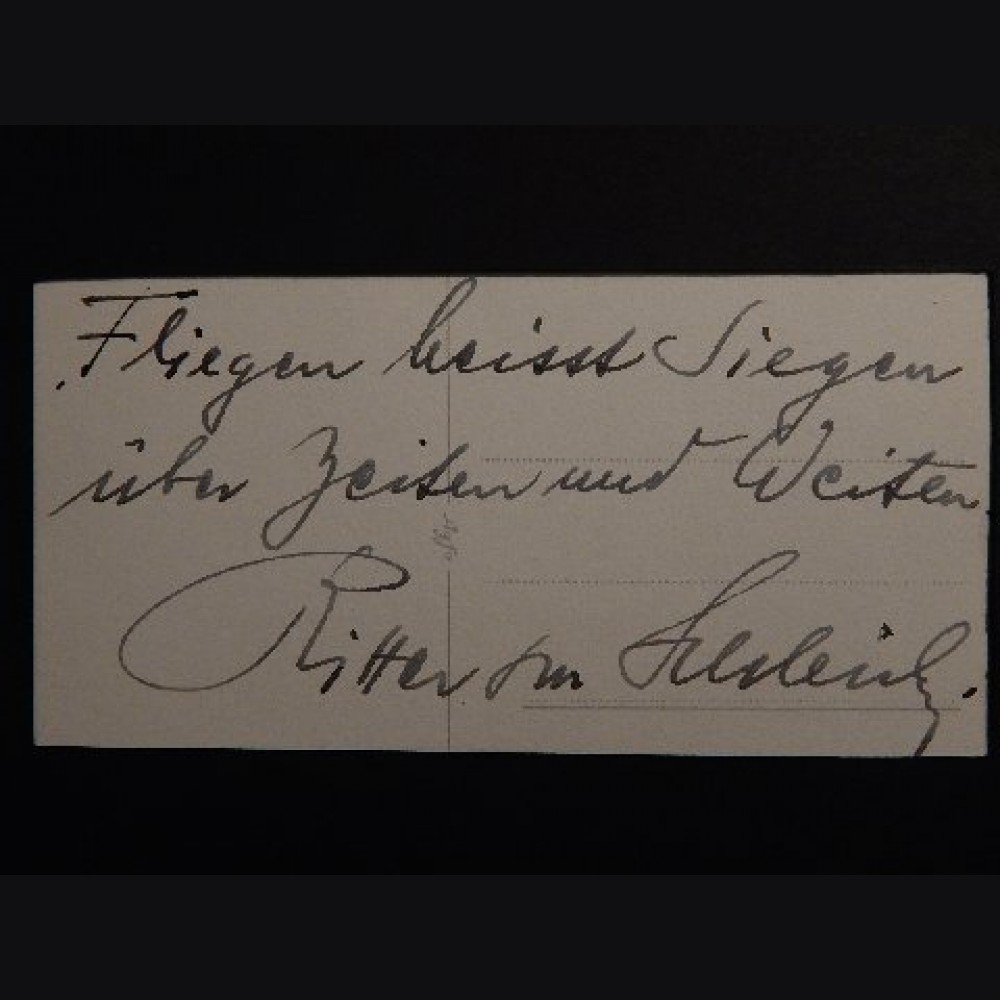 Fliegen heisst Siegen
über Zeiten und Weiten
Ritter von Schleich.